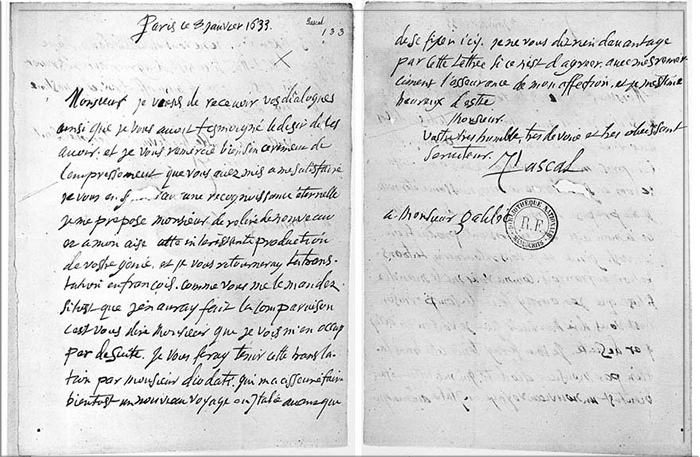 Paris ce 8 Janvier 1633.
Pascal
133
Monsieur je viens de recevoir vos dialogues
ainsi que je vous avoit tesmoigné le desir de les
avoir. et je vous remercie bien sincerement de
l'empressement que vous avez mis a me satisfaire
je vous en une reconnoissance eternelle
je me propose monsieur de relire de nouveau
et a mon aise cette interessante production
de vostre genie. et je vous retourneray la trans-
lation en françois. comme vous me le mandez.
sitost que j'en auray fait la comparaison
c'est vous dire Monsieur que je vois m'en occup
par de suite. je vous feray tenir cette transla-
tion par monsieur diodati. qui m'a asseuré faire
bientost un nouveau voyage en Italie avant que
de se fixer icy. je ne vous diz rien davantage
par cette lettre si ce n'est d'agreer avec mes remer-
ciment l'asseurance de mon affection. et je m'estime
heureux d'estre
Monsieur.
Vostre tres humble, tres devoué et tres obeissant
serviteur. Pascal
a Monsieur galilée
BIBLIOTHÈQUE NATIONALE
R.F.
MANUSCRITS